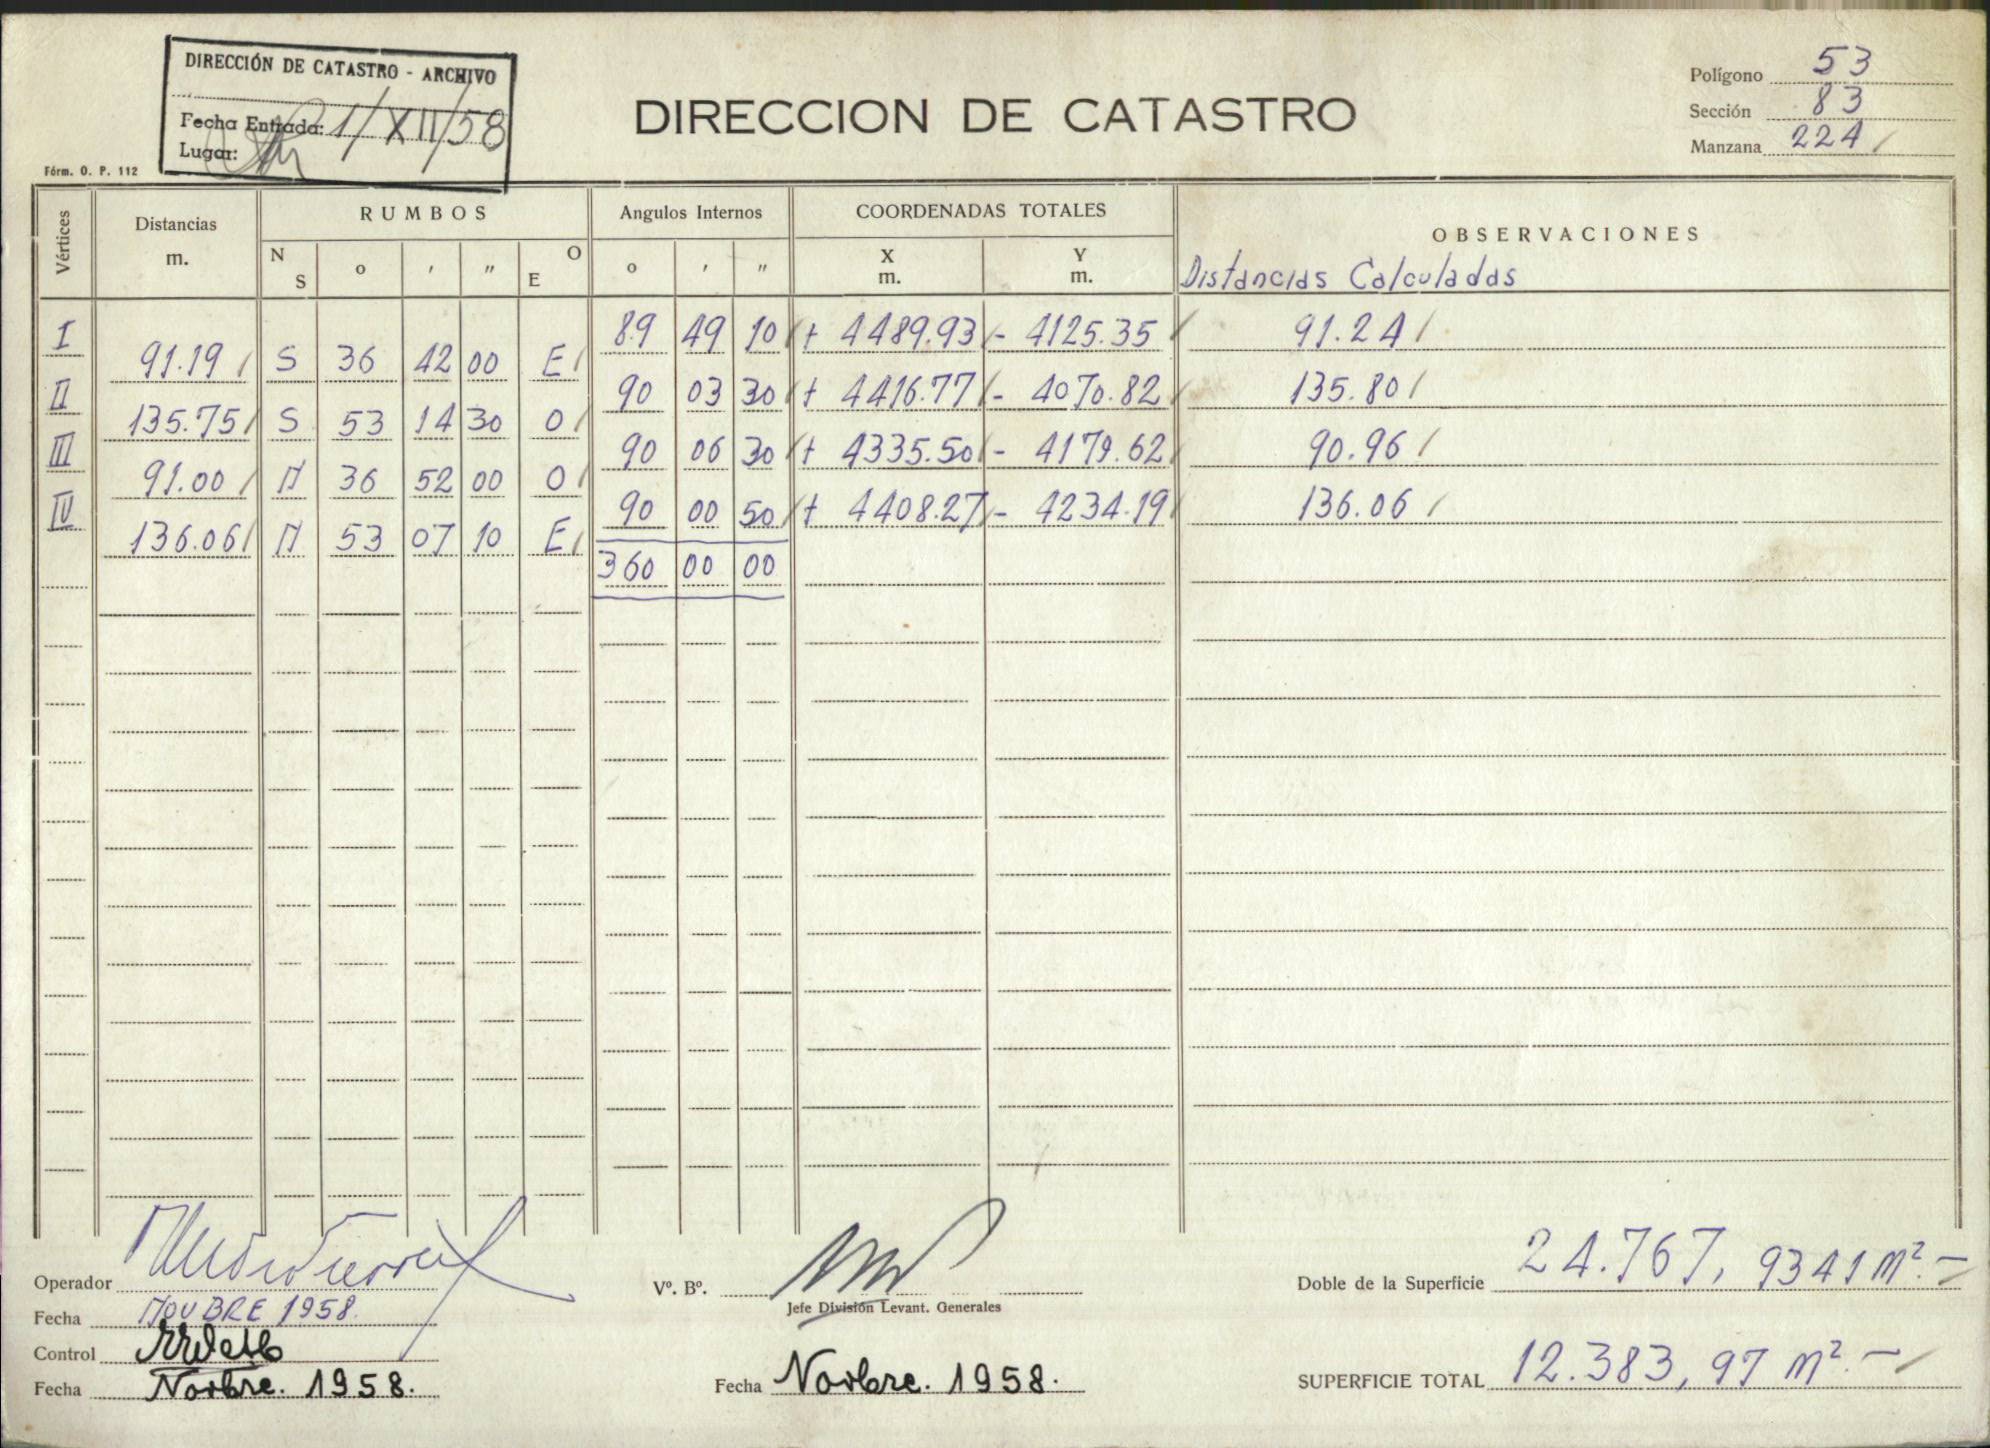 DIRECCIÓN DE CATASTRO - ARCHIVO
Fecha Entrada: 1/XII/58
Lugar:
Fórm. O. P. 112
DIRECCION DE CATASTRO
Polígono 53
Sección 83
Manzana 224
Vértices Distancias m. RUMBOS N S o ' " O E Angulos Internos o ' " COORDENADAS TOTALES X m. Y m. OBSERVACIONES
Distancias Calculadas
I 89 49 10 + 4489.93 - 4125.35 91.24
91.19 S 36 42 00 E
II 90 03 30 + 4416.77 - 4070.82 135.80
135.75 S 53 14 30 O
III 90 06 30 + 4335.50 - 4179.62 90.96
91.00 N 36 52 00 O
IV 90 00 50 + 4408.27 - 4234.19 136.06
136.06 N 53 07 10 E
360 00 00
Operador
Fecha NOVBRE 1958.
Control
Fecha Novbre. 1958.
Vº. Bº.
Jefe División Levant. Generales
Fecha Novbre. 1958.
Doble de la Superficie 24.767, 9341 m². -
SUPERFICIE TOTAL 12.383, 97 m². -